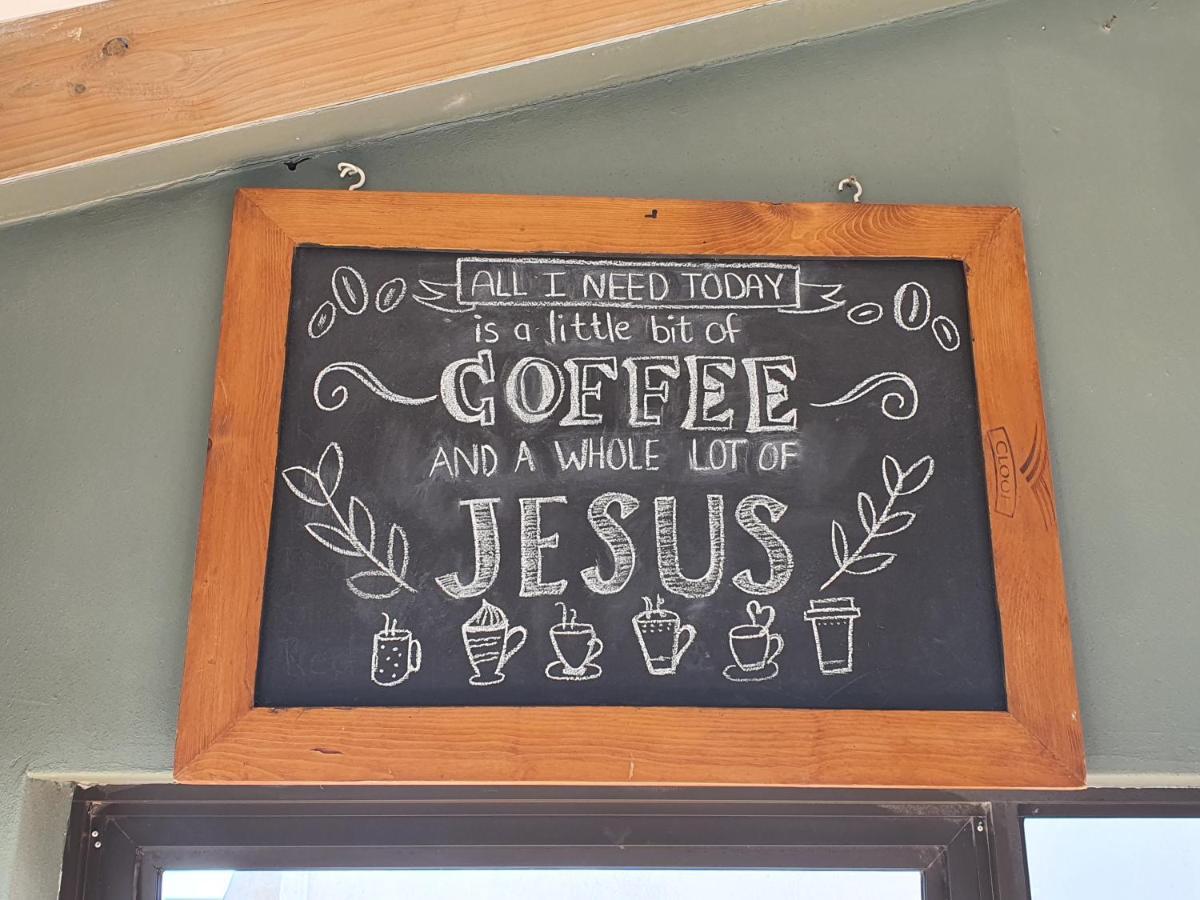 ALL I NEED TODAY
is a little bit of
COFFEE
AND A WHOLE LOT OF
JESUS